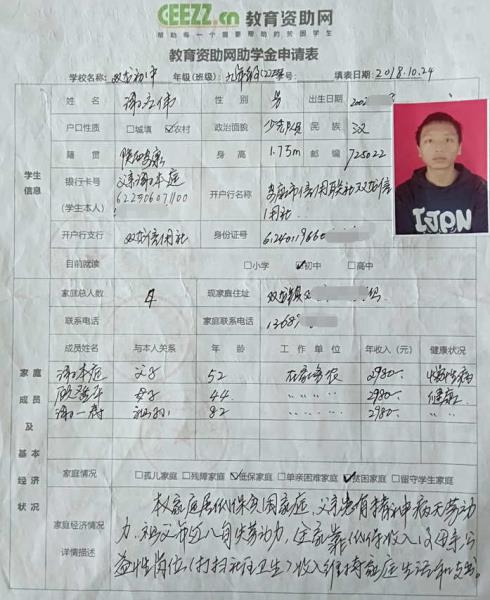 CEEZZ.cn 教育资助网
帮助每一个需要帮助的贫困学生
教育资助网助学金申请表
学校名称: 双龙初中 年级(班级): 号 填表日期: 2018.10.24
姓名 谢立伟 性别 男 出生日期
户口性质 □城镇 ☑农村 政治面貌 少先队员 民族 汉
籍贯 陕西安康 身高 1.75m 邮编 725022
学生信息
银行卡号
(学生本人)
父亲谢本庭
开户行名称 安康市信用联社双龙信
用社
开户行支行 双龙信用社 身份证号
目前就读 □小学 ☑初中 □高中
家庭总人数 4 现家庭住址 双龙镇 组
联系电话 家庭联系电话
成员姓名 与本人关系 年龄 工作单位 年收入(元) 健康状况
谢本庭 父子 52 在家务农 2980 慢性病
44 2980 健康
82 2980
家庭成员及基本经济状况
家庭情况 □孤儿家庭 □残障家庭 ☑低保家庭 □单亲困难家庭 ☑贫困家庭 □留守学生家庭
家庭经济情况
详情描述
家庭居低保贫困家庭,父亲患有精神病无劳动
力,祖父 劳动力,全家靠低保收入及母亲公
益性岗位(打扫社区卫生)收入维持家庭生活和支出。
IJPN